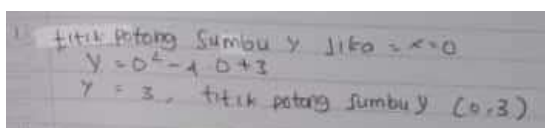 1. titik potong Sumbu y jika = x=0
y = 0² - 4 . 0 + 3
y = 3, titik potong sumbu y (0,3)